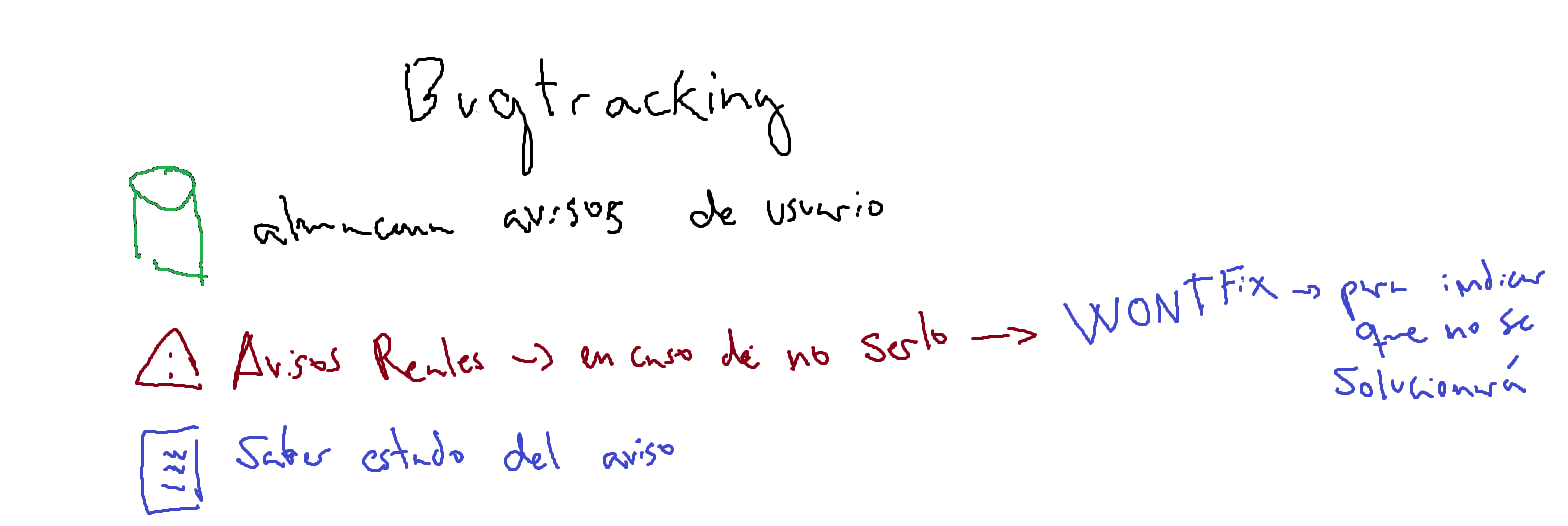 Bugtracking
almacena avisos de usuario
Avisos Reales → en caso de no serlo → WONTFix → para indicar
que no se
solucionará
Saber estado del aviso